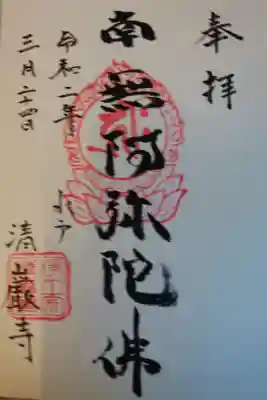 奉拝
南無阿弥陀佛
令和二年
三月二十四日
清巌寺